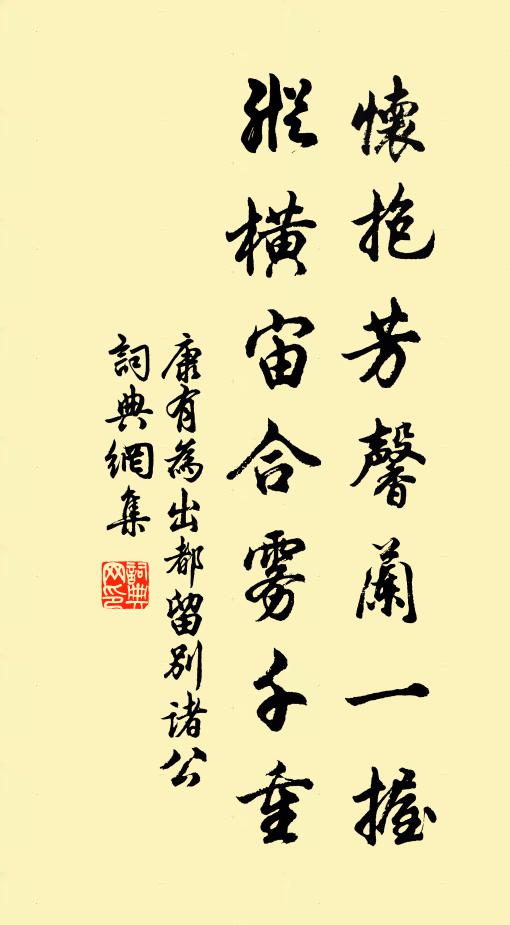 懷抱芳馨蘭一握
縱橫宙合雾千重
康有為出都留別诸公
詞典網集
詞典网印